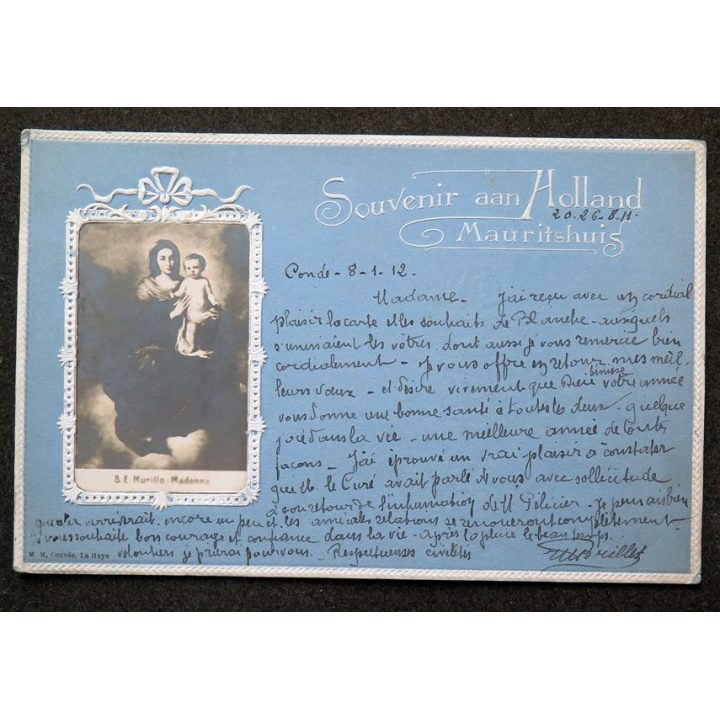 Souvenir aan Holland
20.26.8.11.
Mauritshuis
Conde - 8-1.12.
Madame - j'ai reçu avec un cordial
plaisir la carte et les souhaits de Blanche - auxquels
s'unissaient les vôtres, dont aussi je vous remercie bien
cordialement - je vous offre en retour mes meil-
leurs vœux - et désire vivement que Dieu bénisse votre année
vous donne une bonne santé à toutes les deux - quelque
joie dans la vie - une meilleure année de toutes
façons - J'ai éprouvé un vrai plaisir à constater
que M. le Curé avait parlé à vous avec sollicitude
à son retour de l'inhumation de M. Pelicier - je pensais bien
que cela arriverait, encore un peu et les amicales relations se renoueront complètement
je vous souhaite bon courage et confiance dans la vie - après la pluie le beau temps.
volontiers je prierai pour vous - Respectueuses civilités
B. E. Murillo Madonna
M. M. Couvée, La Haye